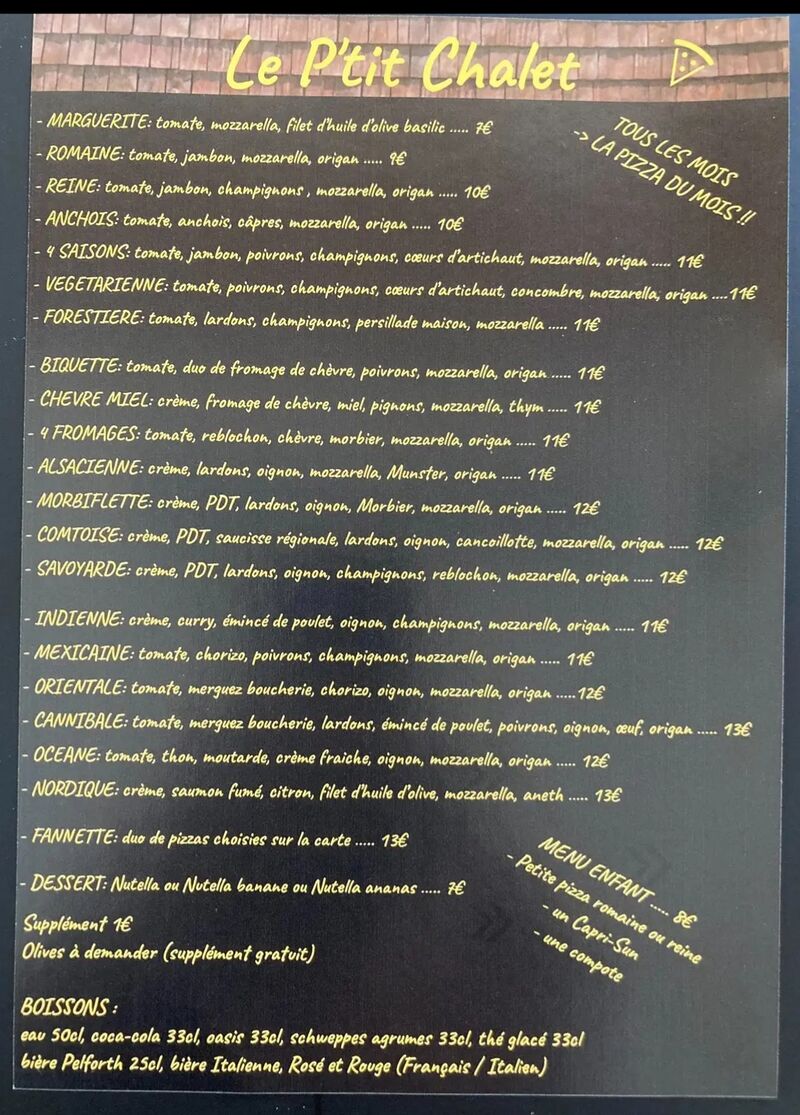 Le P'tit Chalet
- MARGUERITE: tomate, mozzarella, filet d'huile d'olive basilic ..... 7€
- ROMAINE: tomate, jambon, mozzarella, origan ..... 9€
- REINE: tomate, jambon, champignons , mozzarella, origan ..... 10€
- ANCHOIS: tomate, anchois, câpres, mozzarella, origan ..... 10€
TOUS LES MOIS
-> LA PIZZA DU MOIS !!
- 4 SAISONS: tomate, jambon, poivrons, champignons, cœurs d'artichaut, mozzarella, origan ..... 11€
- VEGETARIENNE: tomate, poivrons, champignons, cœurs d'artichaut, concombre, mozzarella, origan ....11€
- FORESTIERE: tomate, lardons, champignons, persillade maison, mozzarella ..... 11€
- BIQUETTE: tomate, duo de fromage de chèvre, poivrons, mozzarella, origan ..... 11€
- CHEVRE MIEL: crème, fromage de chèvre, miel, pignons, mozzarella, thym ..... 11€
- 4 FROMAGES: tomate, reblochon, chèvre, morbier, mozzarella, origan ..... 11€
- ALSACIENNE: crème, lardons, oignon, mozzarella, Munster, origan ..... 11€
- MORBIFLETTE: crème, PDT, lardons, oignon, Morbier, mozzarella, origan ..... 12€
- COMTOISE: crème, PDT, saucisse régionale, lardons, oignon, cancoillotte, mozzarella, origan ..... 12€
- SAVOYARDE: crème, PDT, lardons, oignon, champignons, reblochon, mozzarella, origan ..... 12€
- INDIENNE: crème, curry, émincé de poulet, oignon, champignons, mozzarella, origan ..... 11€
- MEXICAINE: tomate, chorizo, poivrons, champignons, mozzarella, origan ..... 11€
- ORIENTALE: tomate, merguez boucherie, chorizo, oignon, mozzarella, origan .....12€
- CANNIBALE: tomate, merguez boucherie, lardons, émincé de poulet, poivrons, oignon, œuf, origan ..... 13€
- OCEANE: tomate, thon, moutarde, crème fraiche, oignon, mozzarella, origan ..... 12€
- NORDIQUE: crème, saumon fumé, citron, filet d'huile d'olive, mozzarella, aneth ..... 13€
- FANNETTE: duo de pizzas choisies sur la carte ..... 13€
- DESSERT: Nutella ou Nutella banane ou Nutella ananas ..... 7€
MENU ENFANT ..... 8€
- Petite pizza romaine ou reine
- un Capri-Sun
- une compote
Supplément 1€
Olives à demander (supplément gratuit)
BOISSONS :
eau 50cl, coca-cola 33cl, oasis 33cl, schweppes agrumes 33cl, thé glacé 33cl
bière Pelforth 25cl, bière Italienne, Rosé et Rouge (Français / Italien)